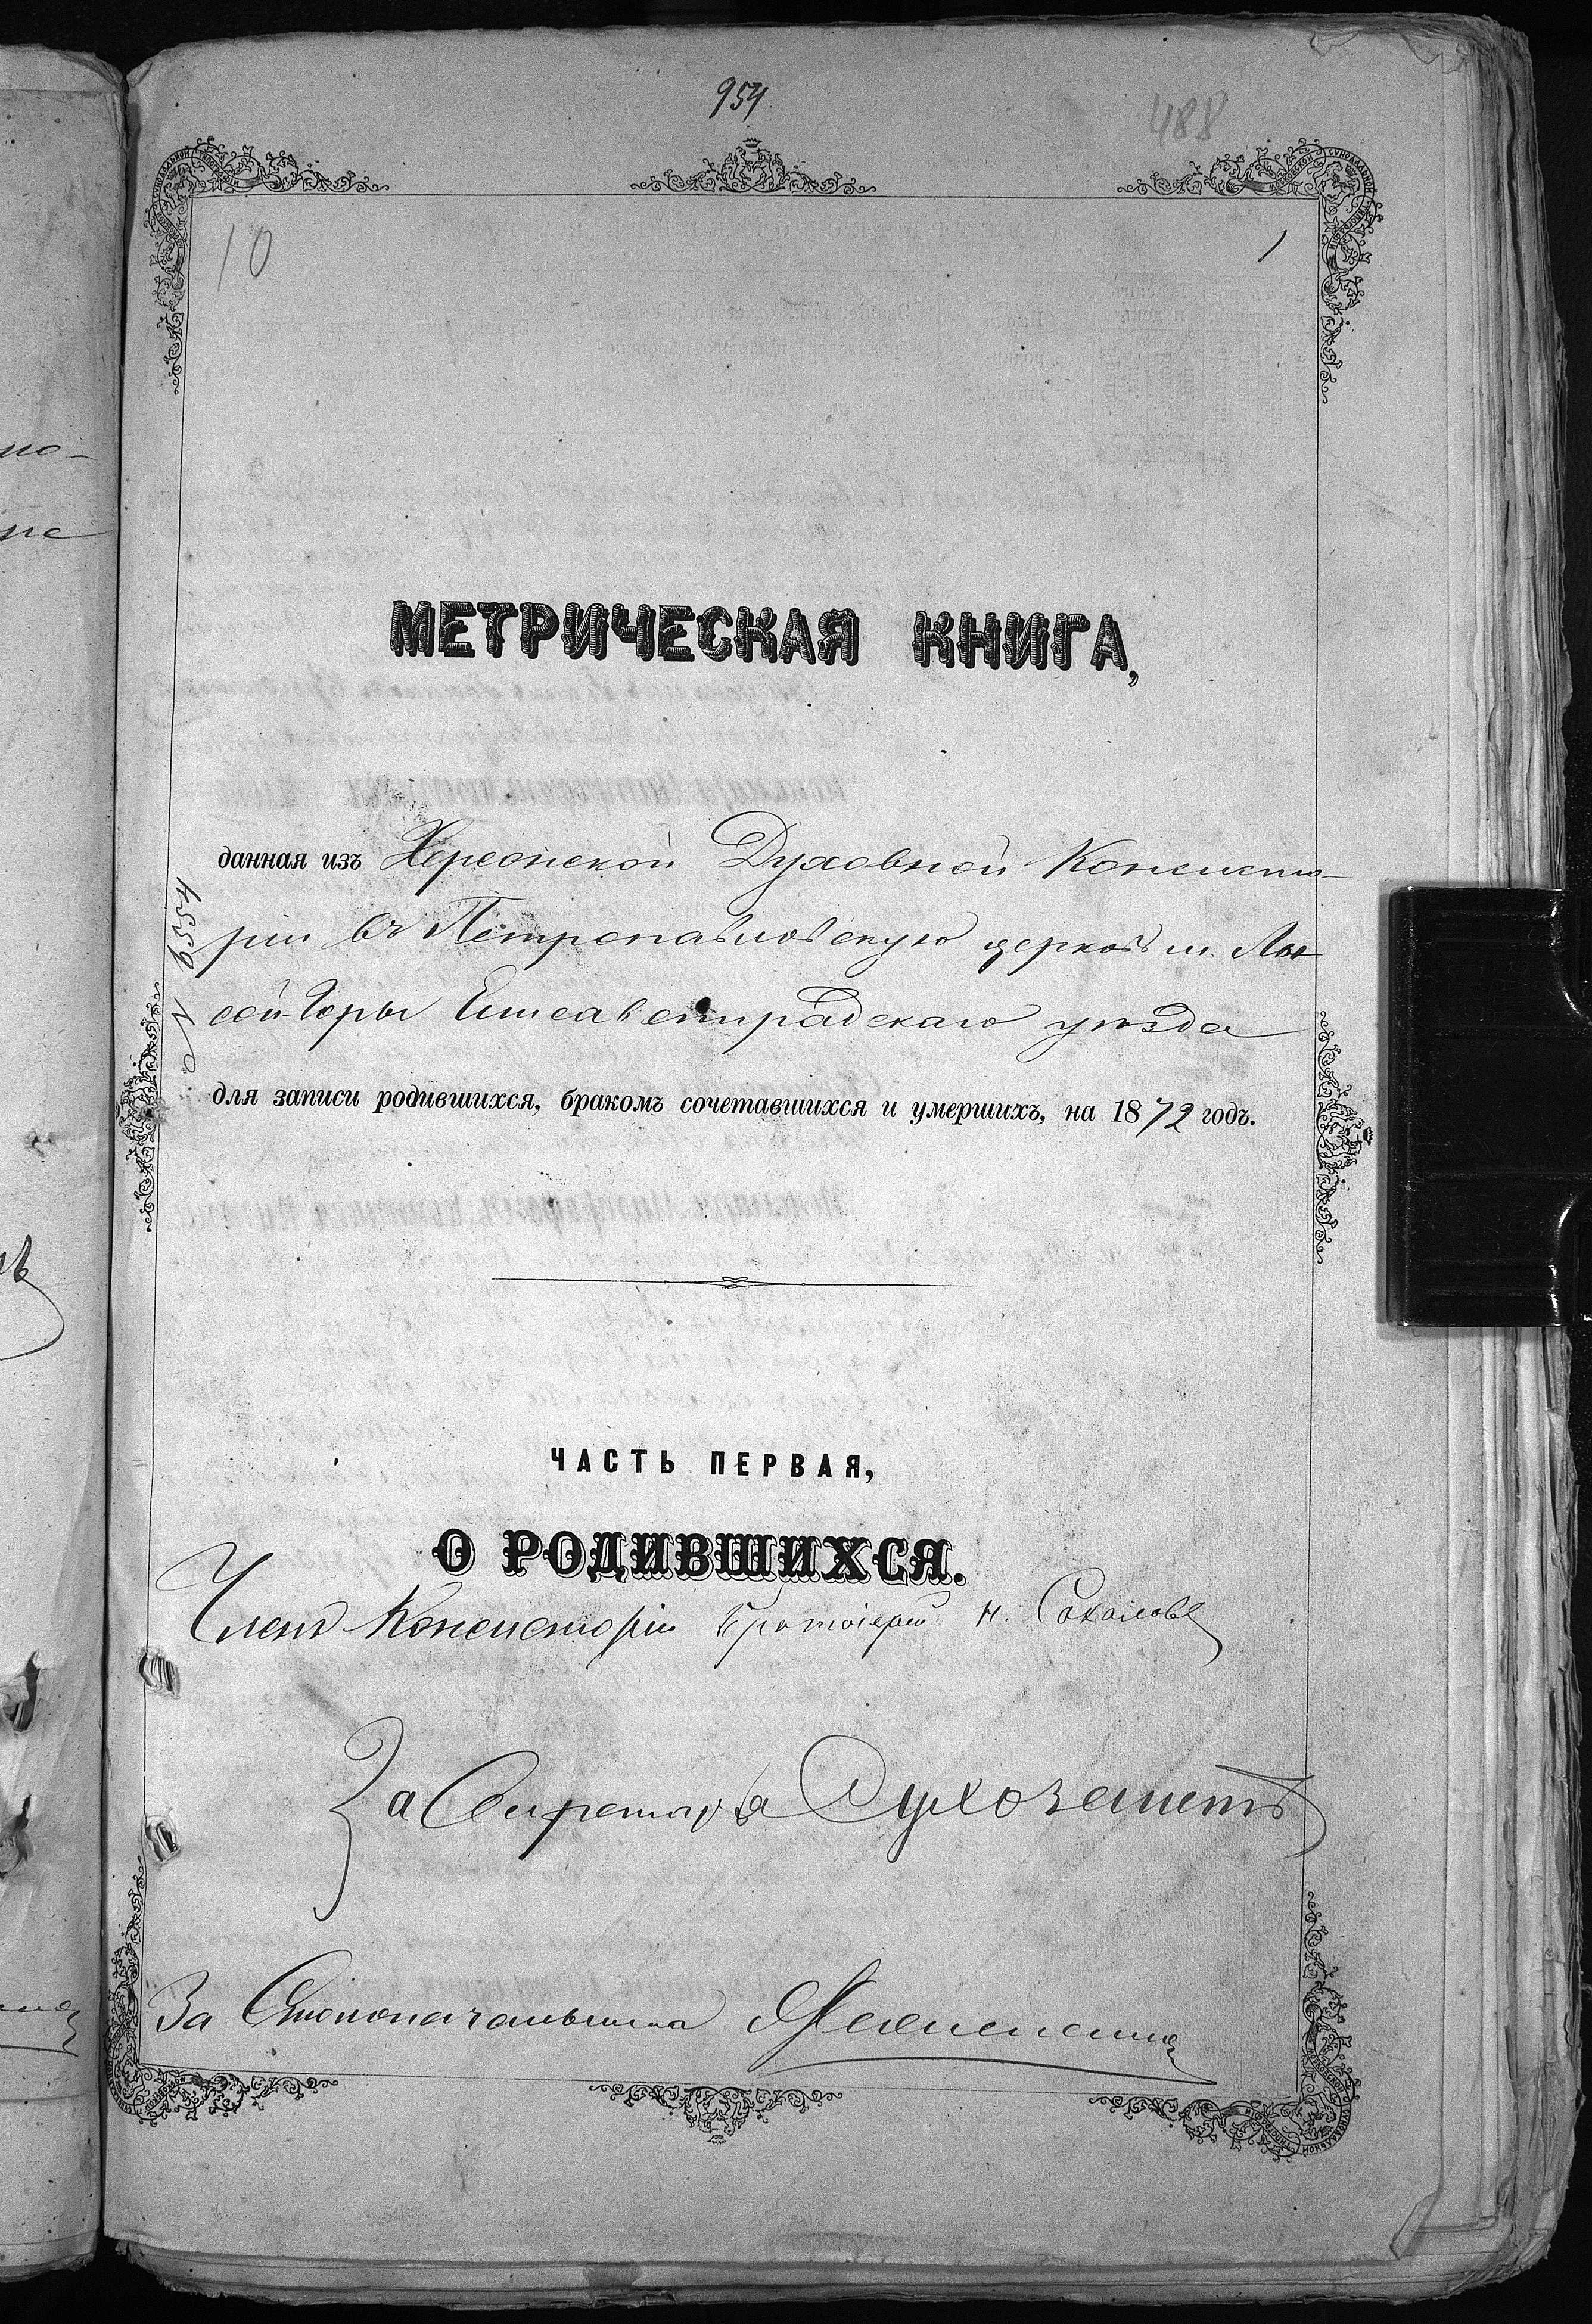 954
488
10
1
МЕТРИЧЕСКАЯ КНИГА,
данная изъ Херсонской Духовной Консисто-
ріи въ Петропавловскую церковь м. Лы-
сой-Горы Елисаветградскаго уѣзда
№ 6554
для записи родившихся, бракомъ сочетавшихся и умершихъ, на 1872 годъ.
ЧАСТЬ ПЕРВАЯ,
О РОДИВШИХСЯ.
Членъ Консисторіи Протоіерей Н. Соколовъ
За Секретаря
За Столоначальника